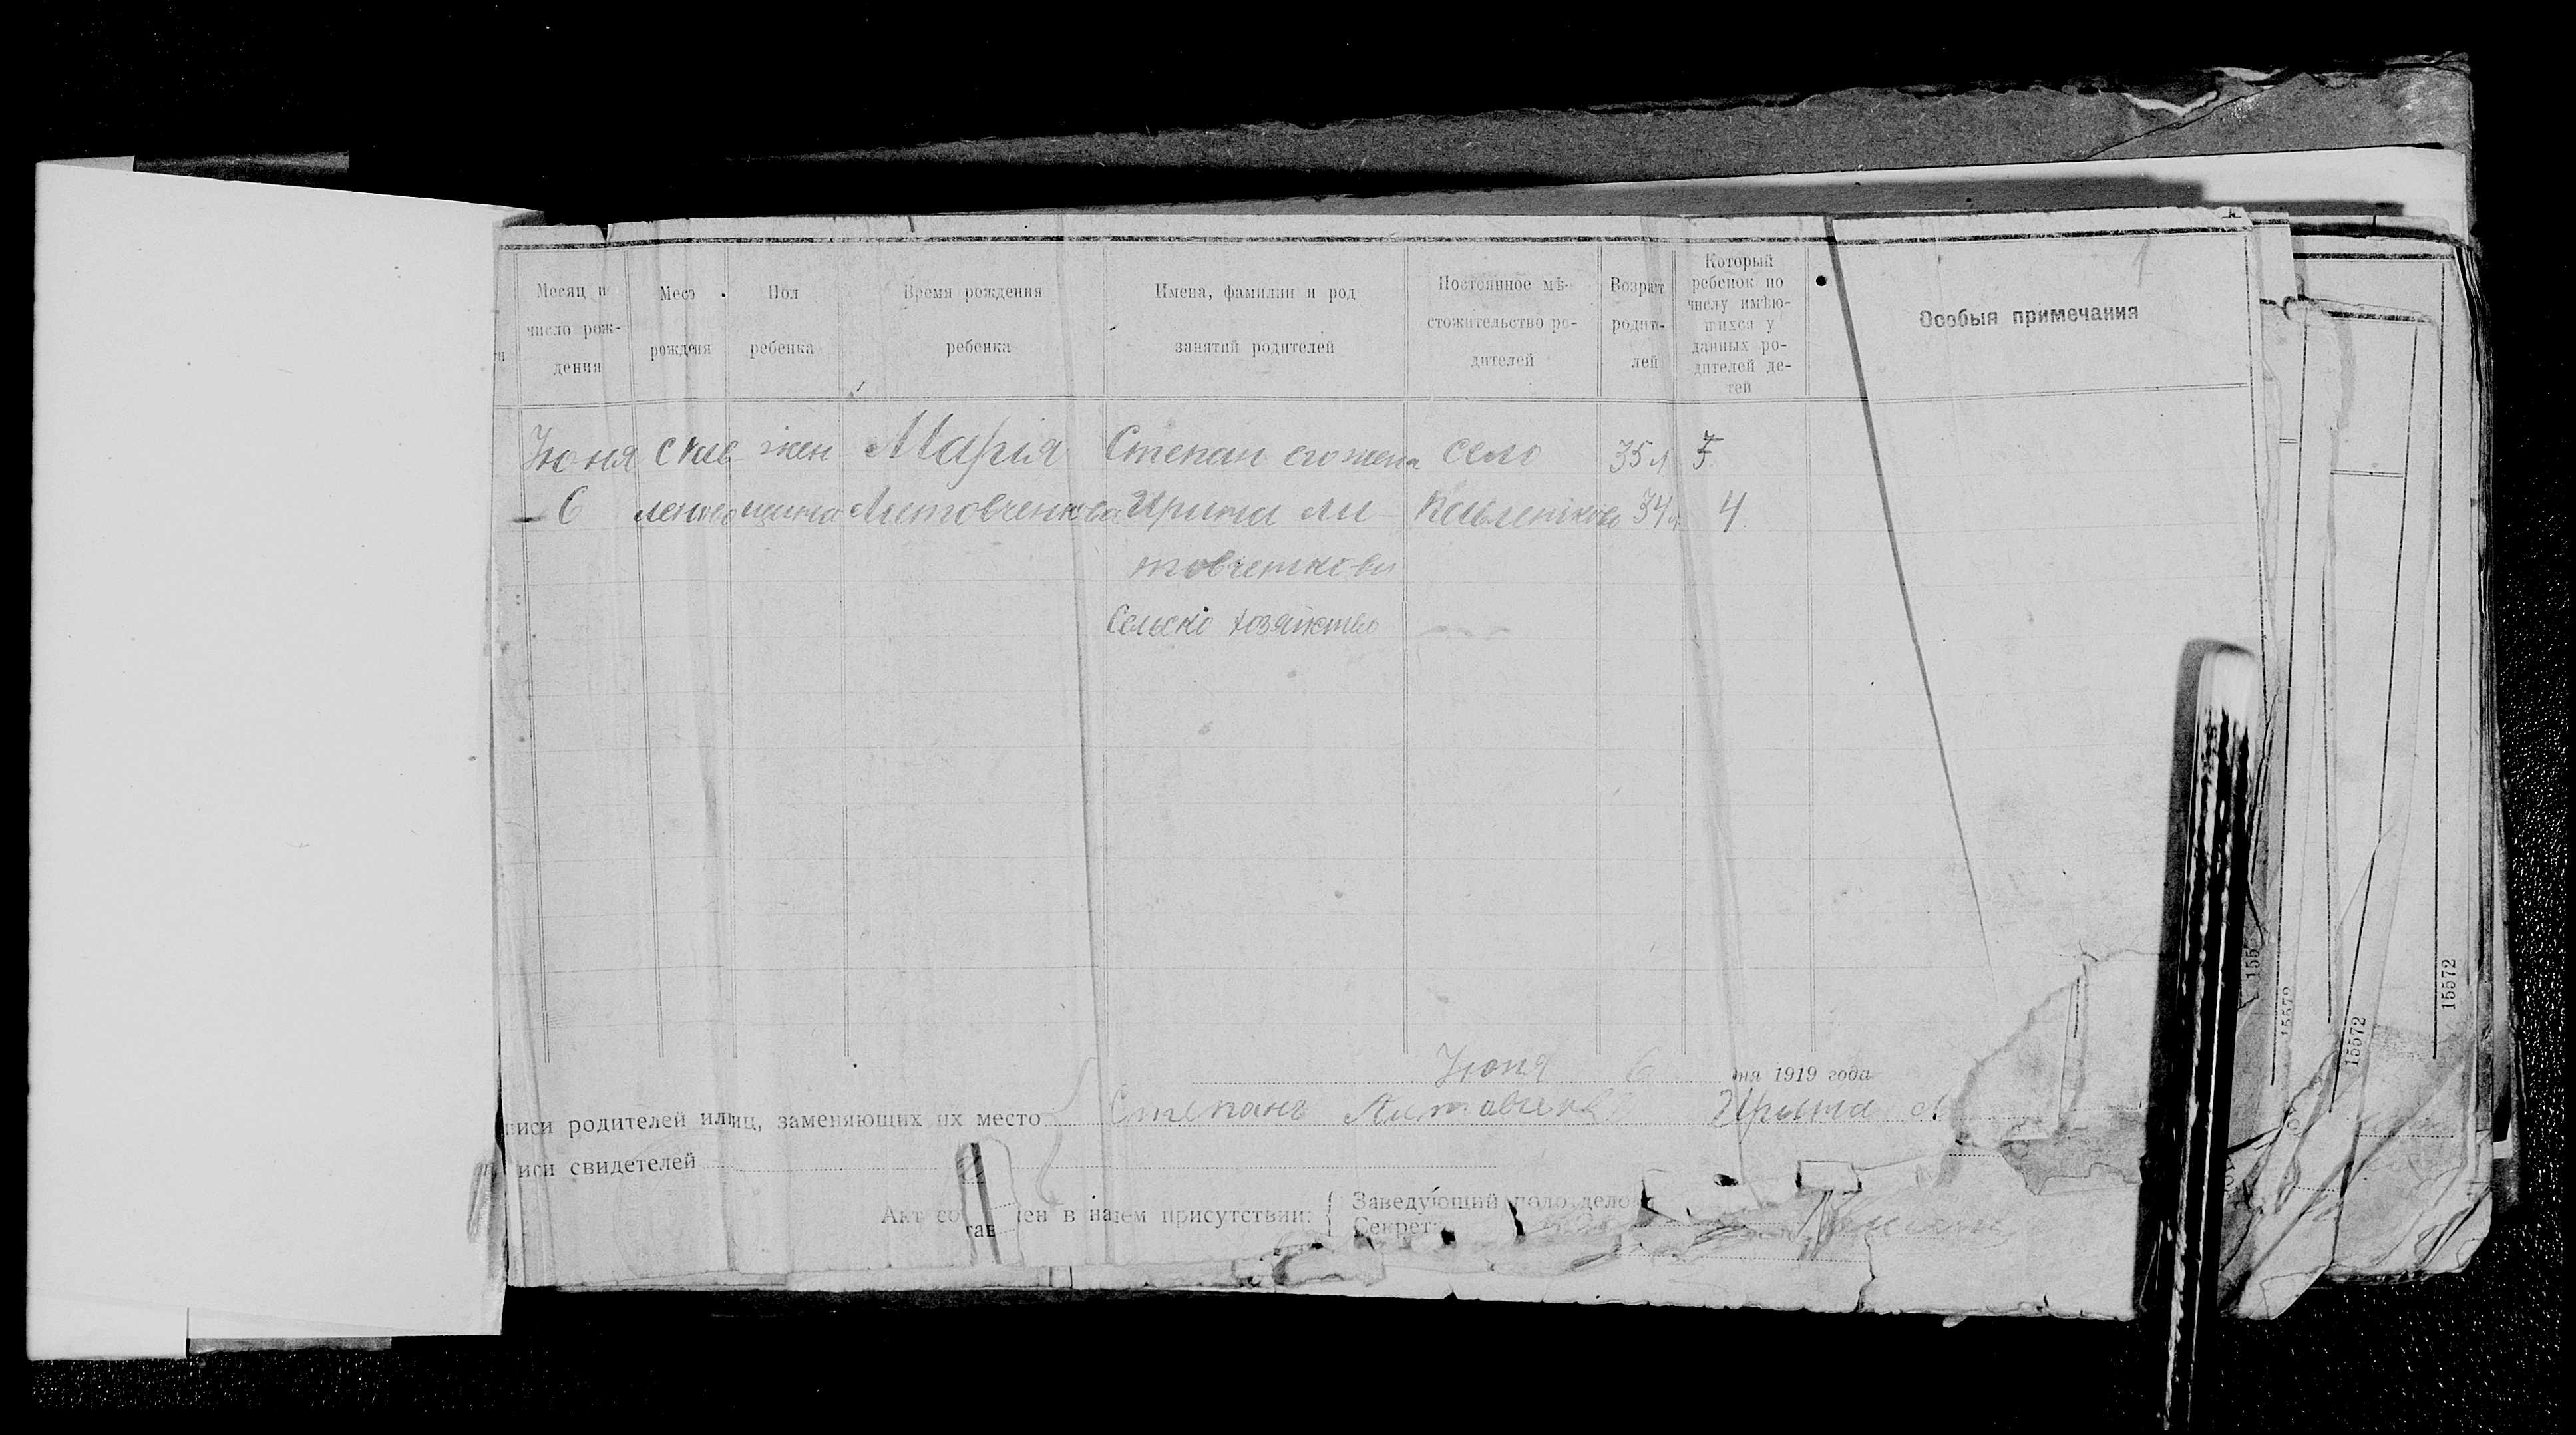 Месяц и
число рож-
дения
Мест
рожденя
Пол
ребенка
Время рождения
ребенка
Имена, фамилии и род
занятий родителей
Постоянное мѣ-
стожительство ро-
дителей
Возраст
родит-
лей
Который
ребенок по
числу имѣю-
щихся у
данных ро-
дителей де-
тей
Особыя примечания
Июня
6
жен
щина
Марія
Литовченкова
Степан его жена
Ирина Ли
товченковы
Сельско хозяйство
село
35 л
34 л
4
Июня 6 дня 1919 года
писи родителей или лиц, заменяющих их место Степанъ Ирина Л
иси свидетелей
Акт состав лен в нашем присутствии:
Заведующий подотделом
Секрет
15572
15572
15572